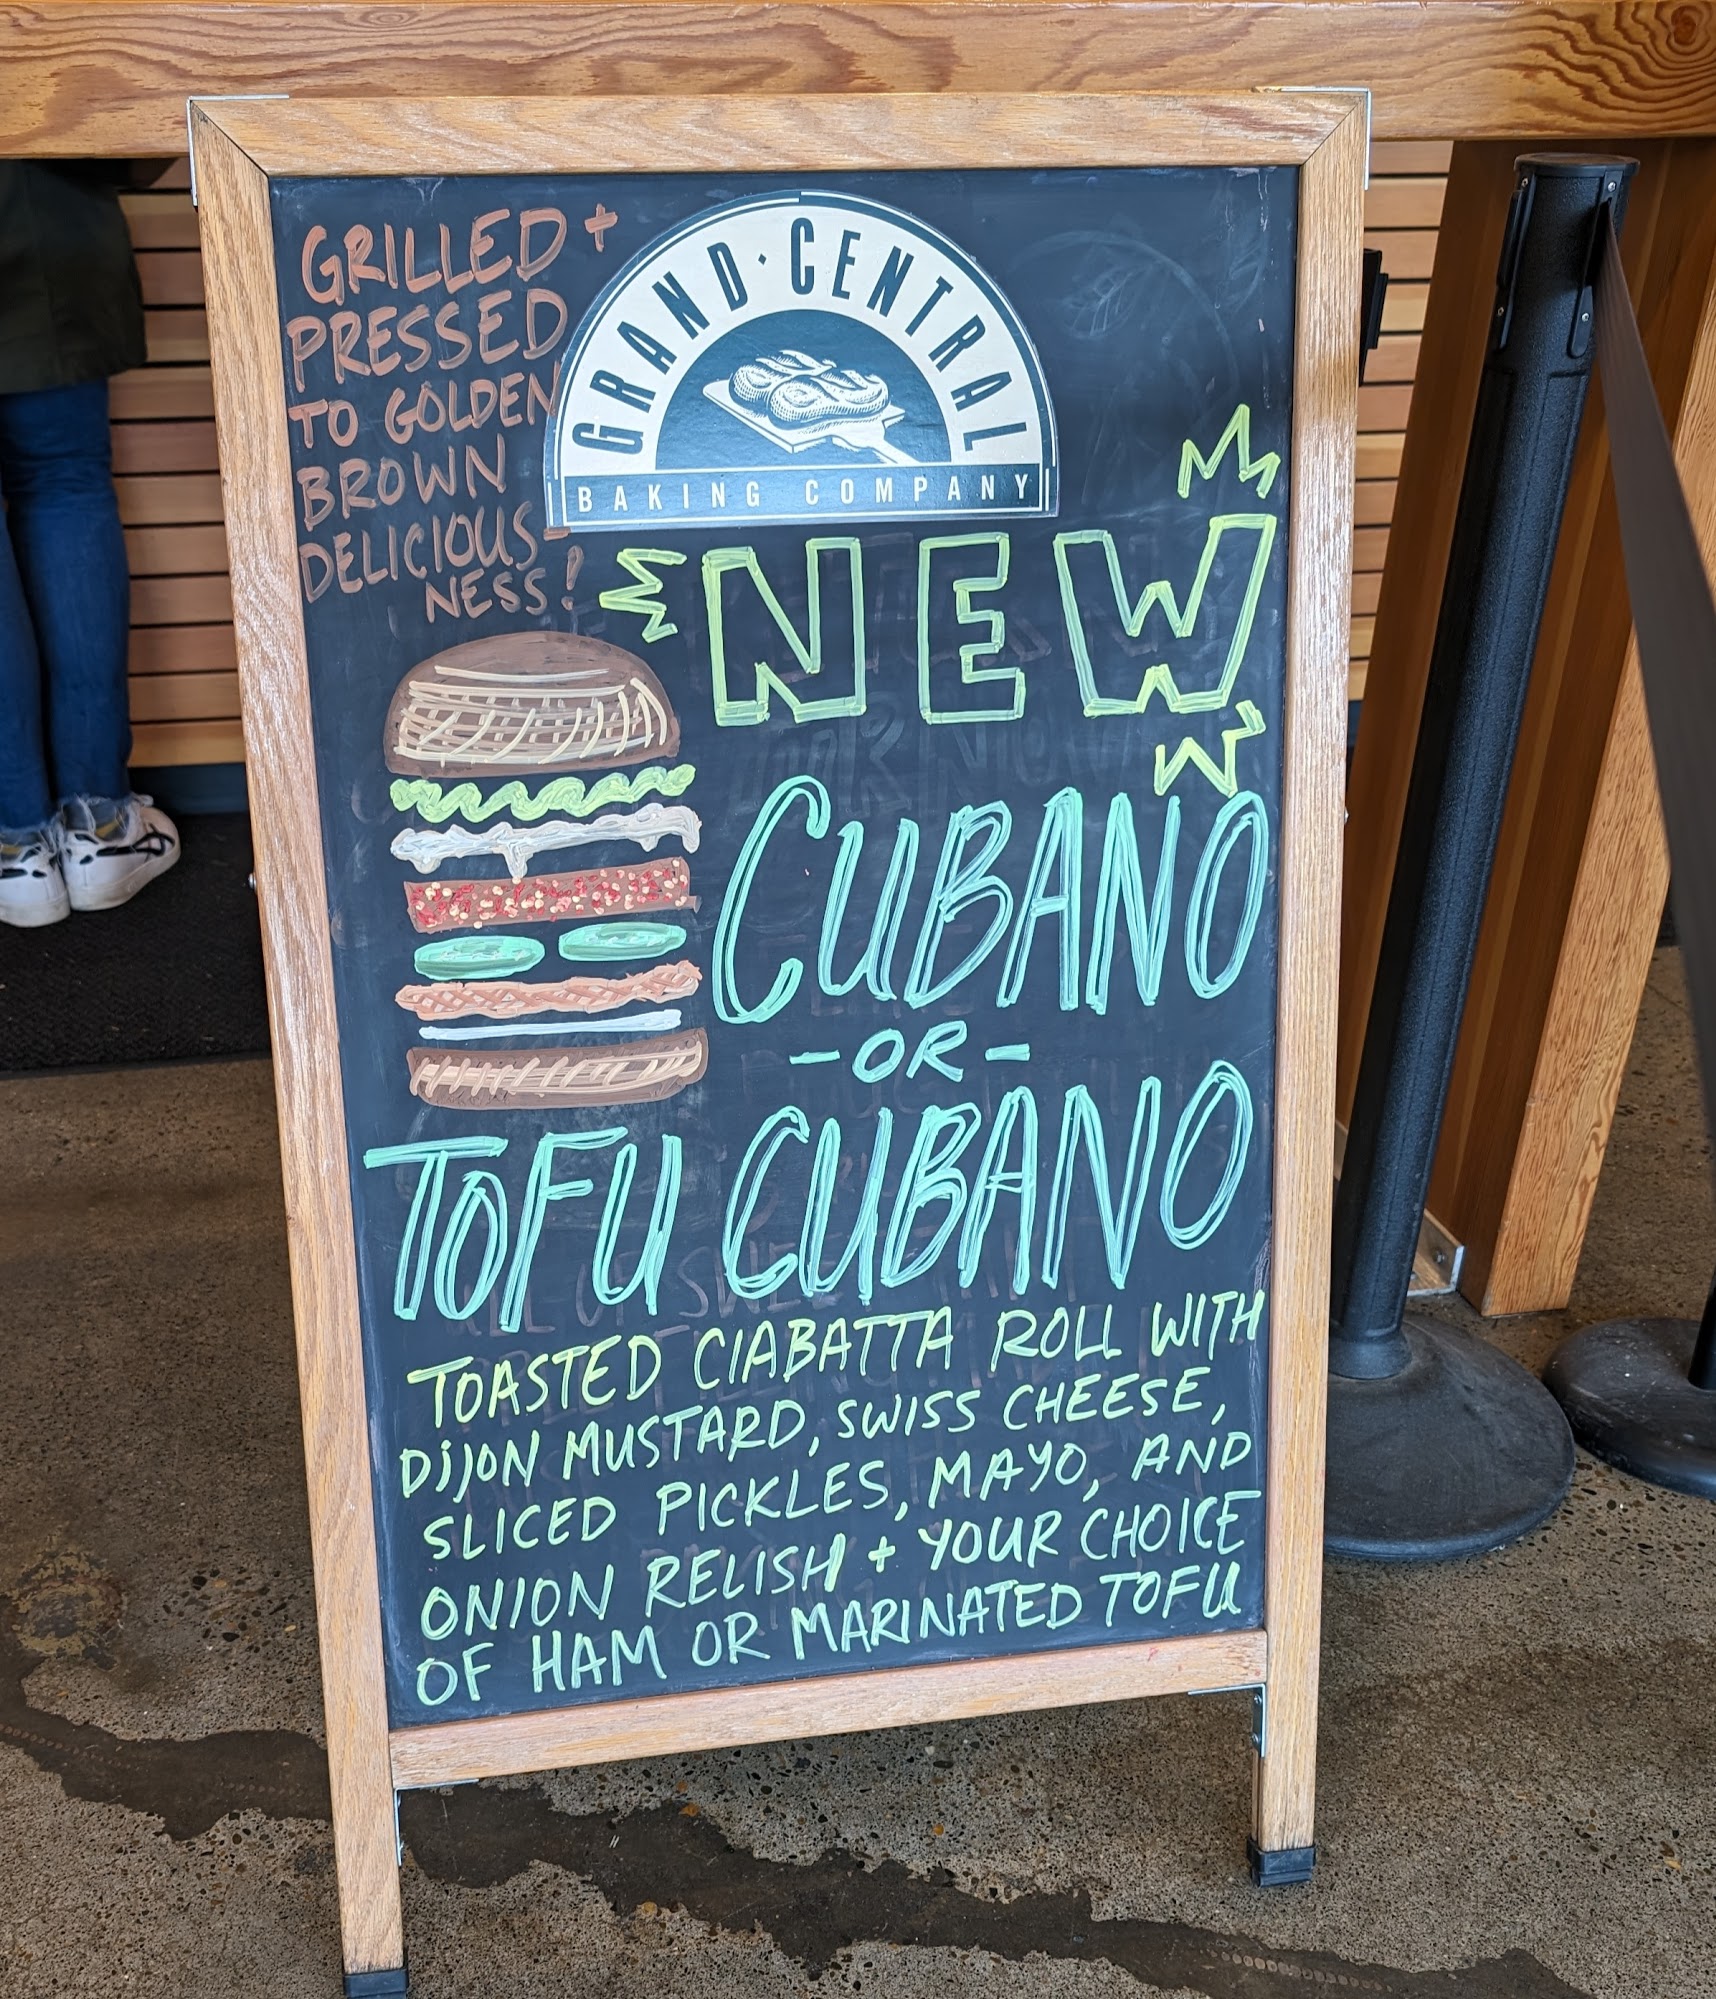 GRILLED +
PRESSED
TO GOLDEN
BROWN
DELICIOUS-
NESS!
GRAND · CENTRAL
BAKING COMPANY
NEW
CUBANO
- OR -
TOFU CUBANO
TOASTED CIABATTA ROLL WITH
DIJON MUSTARD, SWISS CHEESE,
SLICED PICKLES, MAYO, AND
ONION RELISH + YOUR CHOICE
OF HAM OR MARINATED TOFU